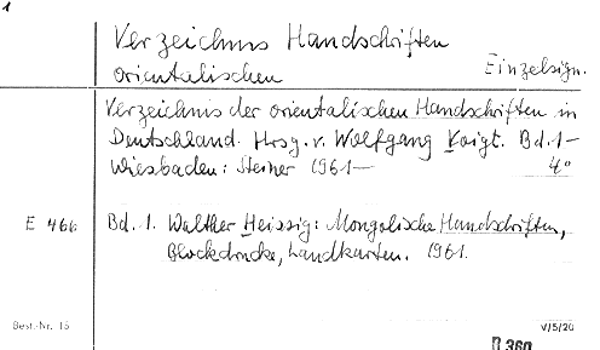 1
Verzeichnis Handschriften
orientalischen Einzelsign.
Verzeichnis der orientalischen Handschriften in
Deutschland. Hrsg. v. Wolfgang Voigt. Bd. 1-
Wiesbaden: Steiner 1961- 4°
E 466 Bd. 1. Walther Heissig: Mongolische Handschriften,
Blockdrucke, Landkarten. 1961.
Best.-Nr. 15 V/5/20